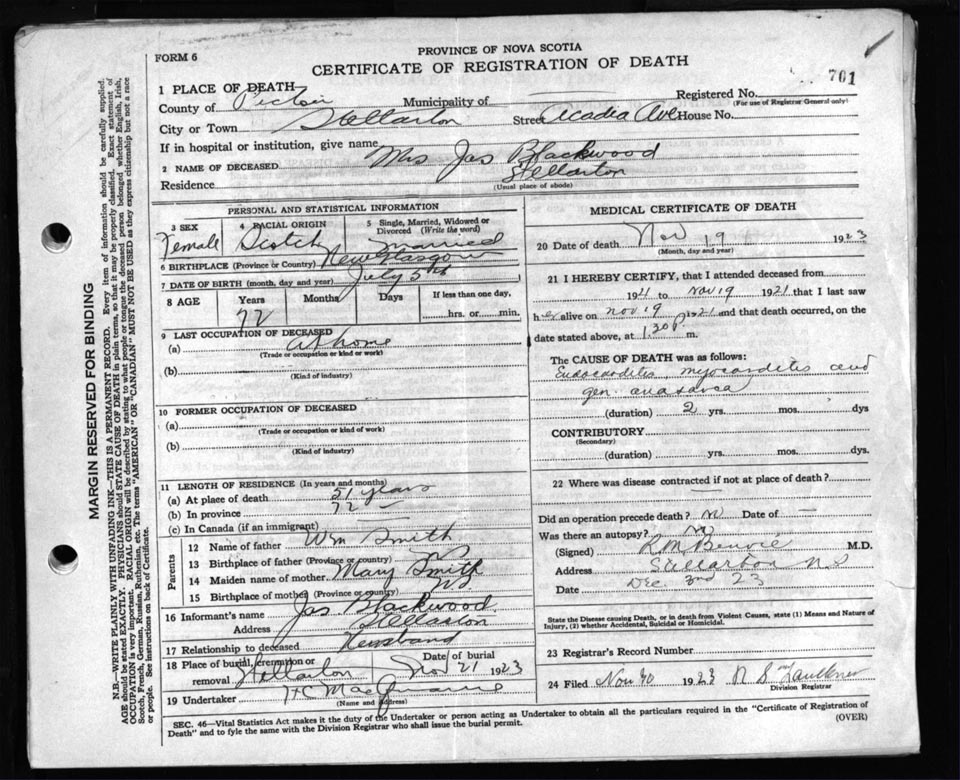 PROVINCE OF NOVA SCOTIA
FORM 6
CERTIFICATE OF REGISTRATION OF DEATH
701
1 PLACE OF DEATH
Registered No.
(For use of Registrar General only)
County of Pictou Municipality of
City or Town Stellarton Street Acadia Ave House No.
If in hospital or institution, give name
2 NAME OF DECEASED Mrs Jas Blackwood
Residence Stellarton
(Usual place of abode)
PERSONAL AND STATISTICAL INFORMATION
3 SEX 4 RACIAL ORIGIN 5 Single, Married, Widowed or
Divorced (Write the word)
Female Scotch Married
6 BIRTHPLACE (Province or Country) New Glasgow
7 DATE OF BIRTH (month, day and year) July 5th
8 AGE Years Months Days If less than one day,
72 hrs. or min.
9 LAST OCCUPATION OF DECEASED
(a) at home
(Trade or occupation or kind or work)
(b)
(Kind of industry)
10 FORMER OCCUPATION OF DECEASED
(a)
(Trade or occupation or kind of work)
(b)
(Kind of industry)
11 LENGTH OF RESIDENCE (In years and months)
(a) At place of death 51 years
(b) In province 72 —
(c) In Canada (if an immigrant)
Parents
12 Name of father Wm Smith
13 Birthplace of father (Province or country) NS
14 Maiden name of mother Mary Smith
15 Birthplace of mother (Province or country) NS
16 Informant's name Jas Blackwood
Address Stellarton
17 Relationship to deceased Husband
18 Place of burial, cremation or Date of burial
removal Stellarton Nov 21 1923
19 Undertaker
(Name and address)
MEDICAL CERTIFICATE OF DEATH
20 Date of death Nov 19 1923
(Month, day and year)
21 I HEREBY CERTIFY, that I attended deceased from
1921 to Nov 19 1921 that I last saw
her alive on nov 19 1921 and that death occurred, on the
date stated above, at 1 30 p. m.
The CAUSE OF DEATH was as follows:
Endocarditis, myocarditis and
gen. anasarca
(duration) 2 yrs. mos. dys
CONTRIBUTORY
(Secondary)
(duration) yrs. mos. dys.
22 Where was disease contracted if not at place of death?
—
Did an operation precede death? no Date of —
Was there an autopsy? no
(Signed) M.D.
Address Stellarton N.S
Date Dec 2nd 23
State the Disease causing Death, or in death from Violent Causes, state (1) Means and Nature of
Injury, (2) whether Accidental, Suicidal or Homicidal.
23 Registrar's Record Number
24 Filed Nov 30 1923
Division Registrar
SEC. 46—Vital Statistics Act makes it the duty of the Undertaker or person acting as Undertaker to obtain all the particulars required in the "Certificate of Registration of
Death" and to fyle the same with the Division Registrar who shall issue the burial permit.
(OVER)
MARGIN RESERVED FOR BINDING
N.B.—WRITE PLAINLY WITH UNFADING INK—THIS IS A PERMANENT RECORD. Every item of information should be carefully supplied.
AGE should be stated EXACTLY. PHYSICIANS should STATE CAUSE OF DEATH in plain terms, so that it may be properly classified. Exact statement of
OCCUPATION is very important. RACIAL ORIGIN will be described by stating to what people or tongue the deceased person belonged whether English, Irish,
Scotch, French, German, Russian, Ruthenian, etc. The terms "AMERICAN" OR "CANADIAN" MUST NOT BE USED as they express citizenship but not a race
or people. See instructions on back of Certificate.